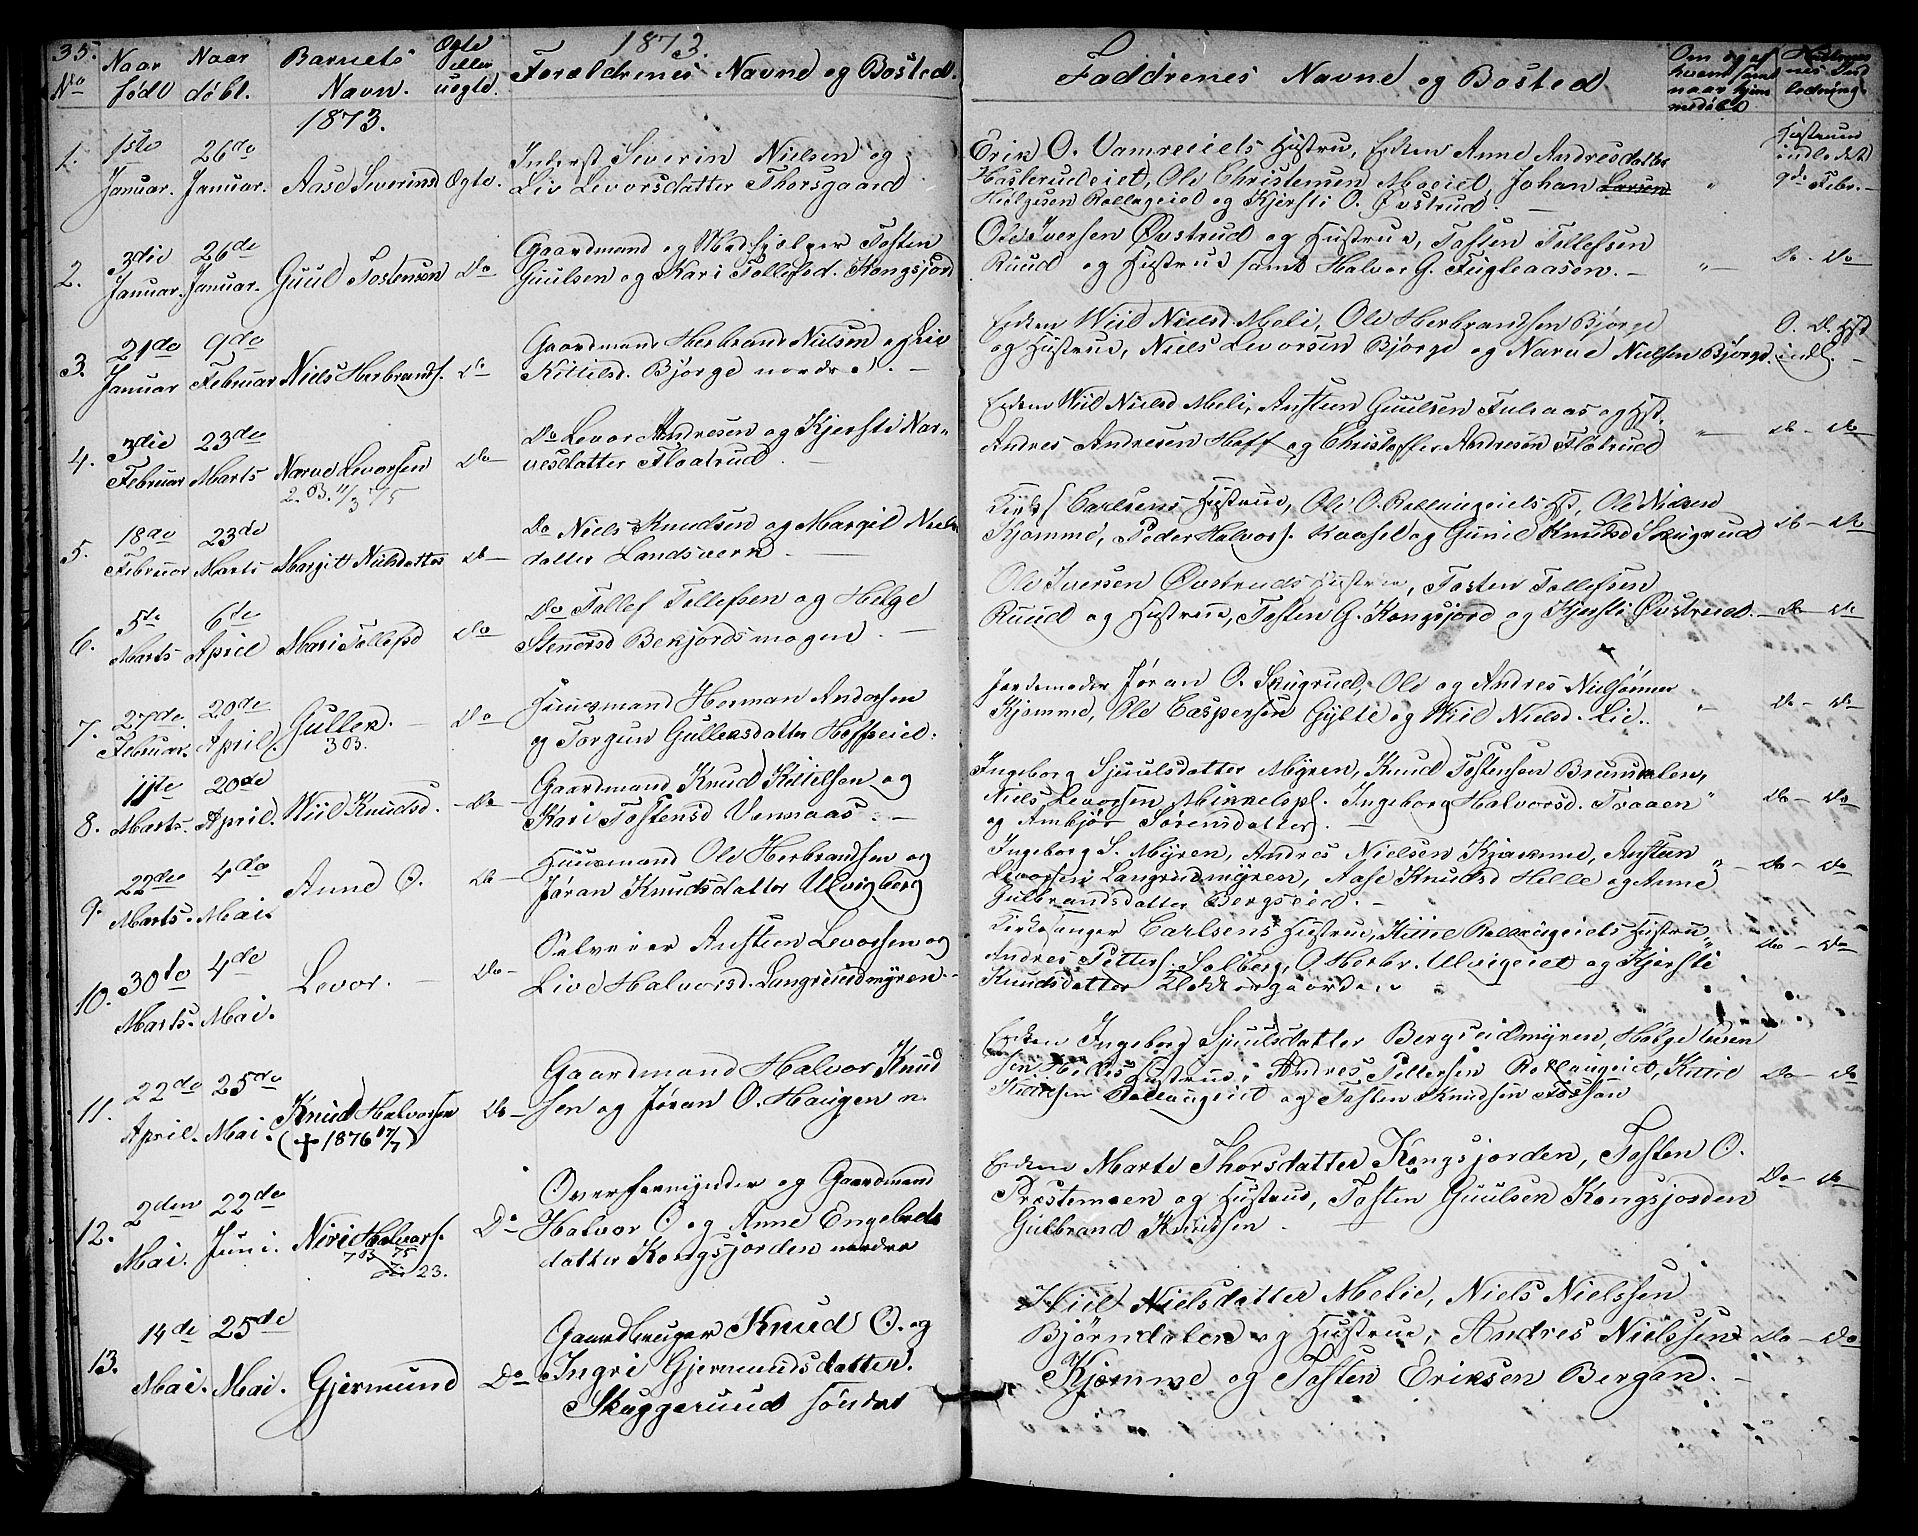 35.
1873.
No
Naar født
Naar døbt.
Barnets Navn.
Ægte eller uægte.
Forældrenes Navne og Bosted.
Faddrenes Navne og Bosted
Om og af hvem samt naar hjemmedøbt
1873.
1. 1ste Januar. 26de Januar. Aase Severinsd Ægte.
Inderst Severin Nielsen og
Liv Levorsdatter Thorsgaard
Erik O. Vamreeiets Hustru, Enken Anne Andresdatter
Haslerudeiet, Ole Christensen Moeiet, Johan Larsen
Helgesen Rollageiet og Kjersti O. Øvstrud.
Hustruen indledet 9de Febr.
2. 3die Januar. 26de Januar. Guul Tostensen Do
Gaardmand og Medhjelper Tosten
Guulsen og Kari Tollefsd. Kongsjord
Ole Iversen Øvstrud og Hustrue, Tosten Tollefsen
Ruud og Hustrue samt Halvor G. Fugleaasen.
" Do - Do
3. 21de Januar 9de Februar Niels Herbrands. Do
Gaardmand Herbrand Nielsen og Liv
Kittilsd. Bjørge nordre
Enken Wiil Nielsd. Meli, Ole Herbrandsen Bjørge
og Hustrue, Niels Levorsen Bjørge og Narve Nielsen Bjørge.
indl.
4. 3die Februar 23de Marts Narve Levorsen Do
2. B. 11/3 75
Do Levor Andresen og Kjersti Nar-
vesdatter Floatrud
Enken Wiil Nielsd Meli, Austeen Guulsen Fulsaas og Hst.
Andres Andresen Hoff og Christoffer Andresen Flotrud
" Do - Do
5. 18de Februar 23de Marts Margit Nielsdatter Do
Do Niels Knudsen og Margit Niels
datter Landsværk
Carlsens Hustrue, Ole O. Rollaugeiets Hst, Ole Nielsen
Kjømme, Peder Halvors. Kaasel og Gunil Knutsd Skugrud
Do - Do
6. 5te Marts 6te April Mari Tollefsd Do
Do Tollef Tollefsen og Helge
Stenersd Bekjordsmogen.
Ole Iversen Øvstruds Hustrue, Tosten Tollefsen
Ruud og Hustrue, Tosten G. Kongsjord og Kjersti Øvstrud.
Do - Do
7. 27de Februar. 20de April. Gullek. Do
3 B.
Huusmand Herman Andersen
og Torgun Gulleksdatter Hoffseiet.
Jordemoder Jøran O. Skugrud, Ole og Andres Nielsønner
Kjømme, Ole Caspersen Gylte og Wiil Nielsd. Lie.
" Do - Do
8. 11te Marts. 20de April. Wiil Knudsd. Do
Gaardmand Knud Kittelsen og
Kari Tostensd Vennaas.
Ingeborg Sjuulsdatter Myren, Knud Tostensen Brundalen,
Niels Levorsen Mikkelspl. Ingeborg Halvorsd. Traaen
og Ambjør Sørensdatter.
" Do - Do
9. 22de Marts. 4de Mai. Anne O. Do
Huusmand Ole Herbrandsen og
Jøran Knudsdatter Ulvigberg
Ingeborg S. Myren, Andres Nielsen Kjømme, Austeen
Levorsen Langrudmyren, Aase Knudsd Helle og Anne
Gulbrandsdatter Bergseid.
" Do - Do
10. 30te Marts. 4de Mai. Levor. Do
Selveier Austeen Levorsen og
Live Halvorsd. Langruudmyren.
Kirkesanger Carlsens Hustrue, Kittil Rollaugeiets Hustru
Andres Petters. Solberg, O Herbr. Ulvigeiet og Kjersti
Knudsdatter
" Do - Do
11. 22de April. 25de Mai. Knud Halvorsen Do
(✝ 1876 17/7)
Gaardmand Halvor Knud
sen og Jøran O. Haugen n.
Enken Ingeborg Sjuulsdatter Bergseidmyren, Helge
Hustrue, Andres Pettersen Rollaugeiet, Kittil
Kittilsen Rollaugeiet og Tosten Knudsen Fossan
Do - Do
12. 2den Mai. 22de Juni. Niri Halvors. Do
7 B 75
23.
Overformynder og Gaardmand
Halvor O og Anne Engebrets
datter Kongsjorden nordre
Enken Marte Thorsdatter Kongsjorden, Tosten O.
Præstemoen og Hustrue, Tosten Guulsen Kongsjorden
Gulbrand Knudsen.
Do - Do
13. 14de Mai. 25de Mai. Gjermund Do
Gaardbruger Knud O. og
Ingri Gjermundsdatter.
Skuggeruud søndre
Wiil Nielsdatter Melie, Niels Nielssen
Bjørndalen og Hustrue, Andres Nielssen
Kjømme og Tosten Eriksen Bergan.
Do - Do